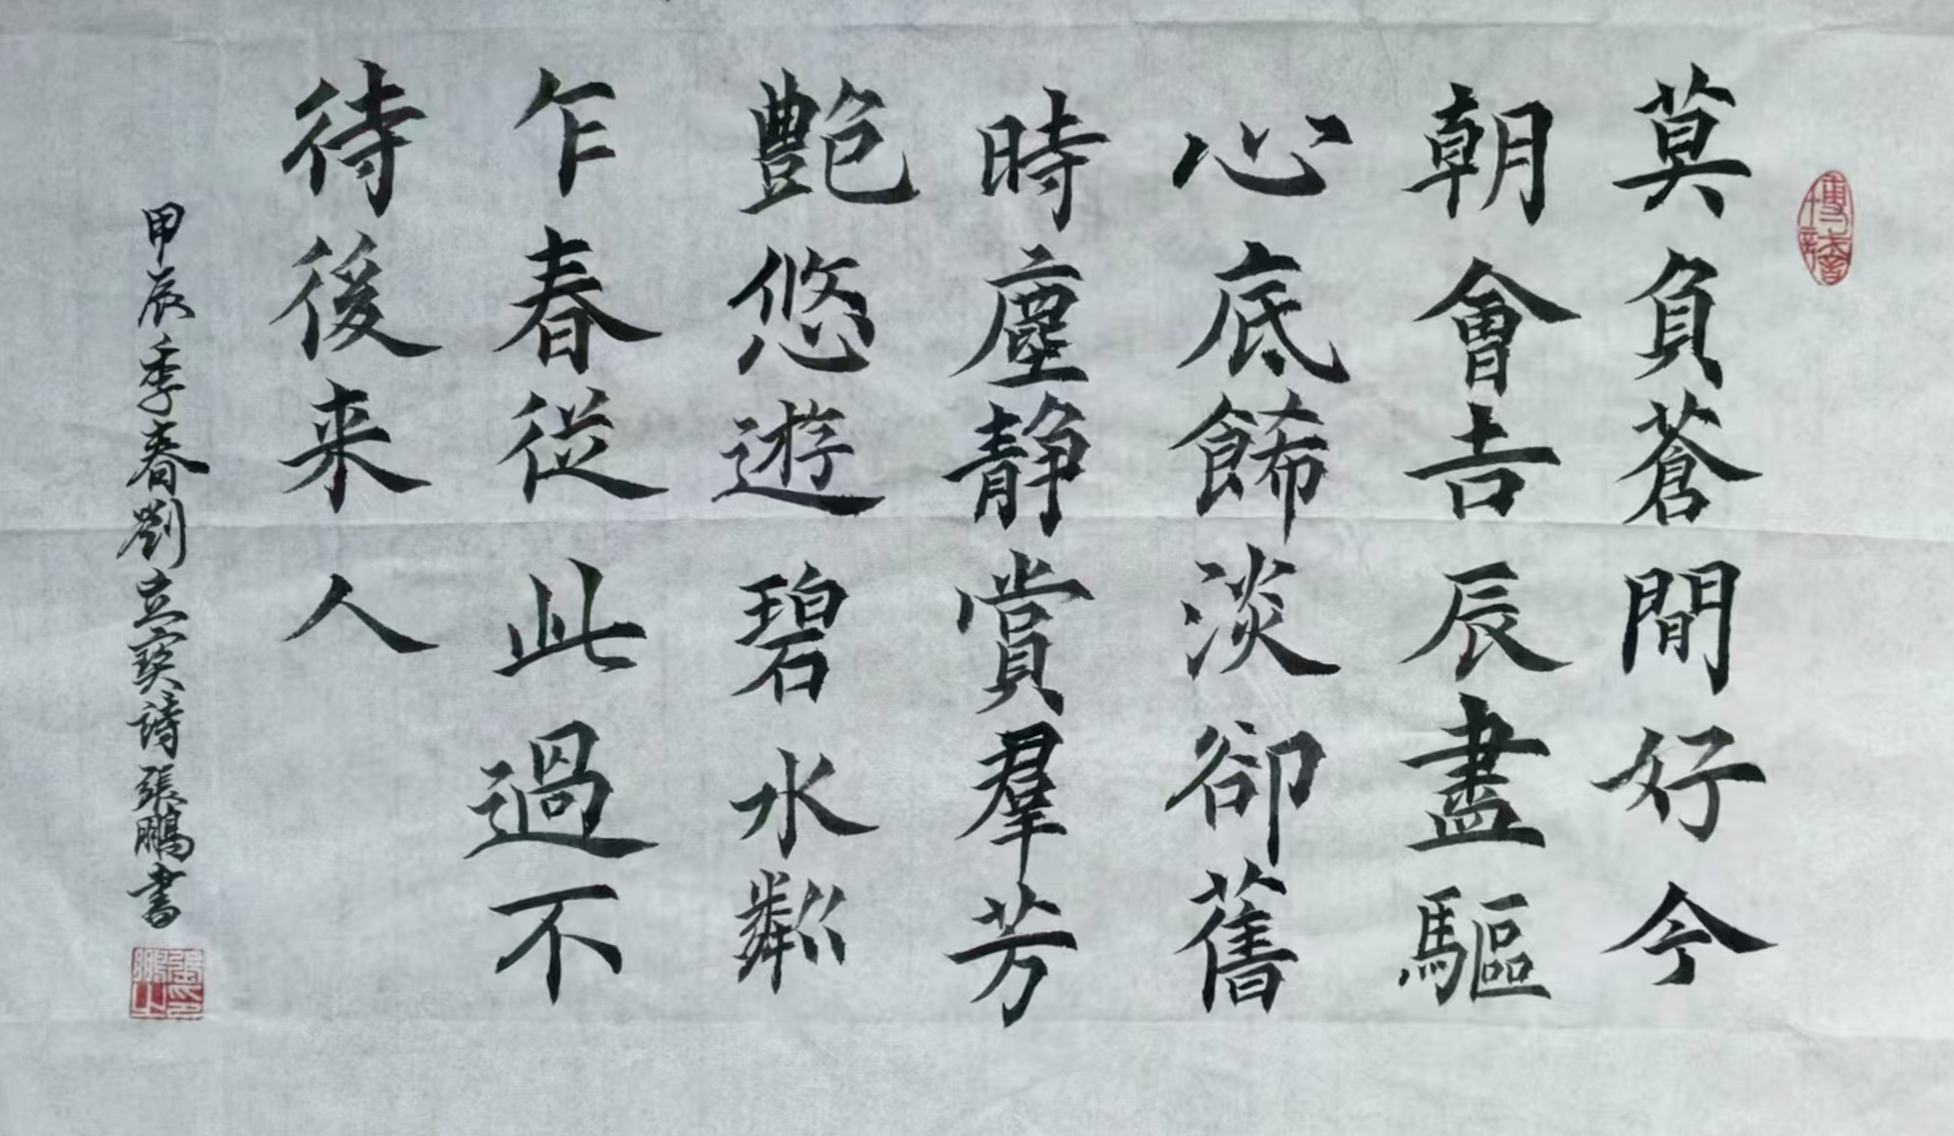 莫負蒼間好今
朝會吉辰盡驅
心底餙淡卻舊
時塵静賞羣芳
艶悠遊碧水粼
乍春従此過不
待後来人
甲辰季春劉立寶詩張鵬書